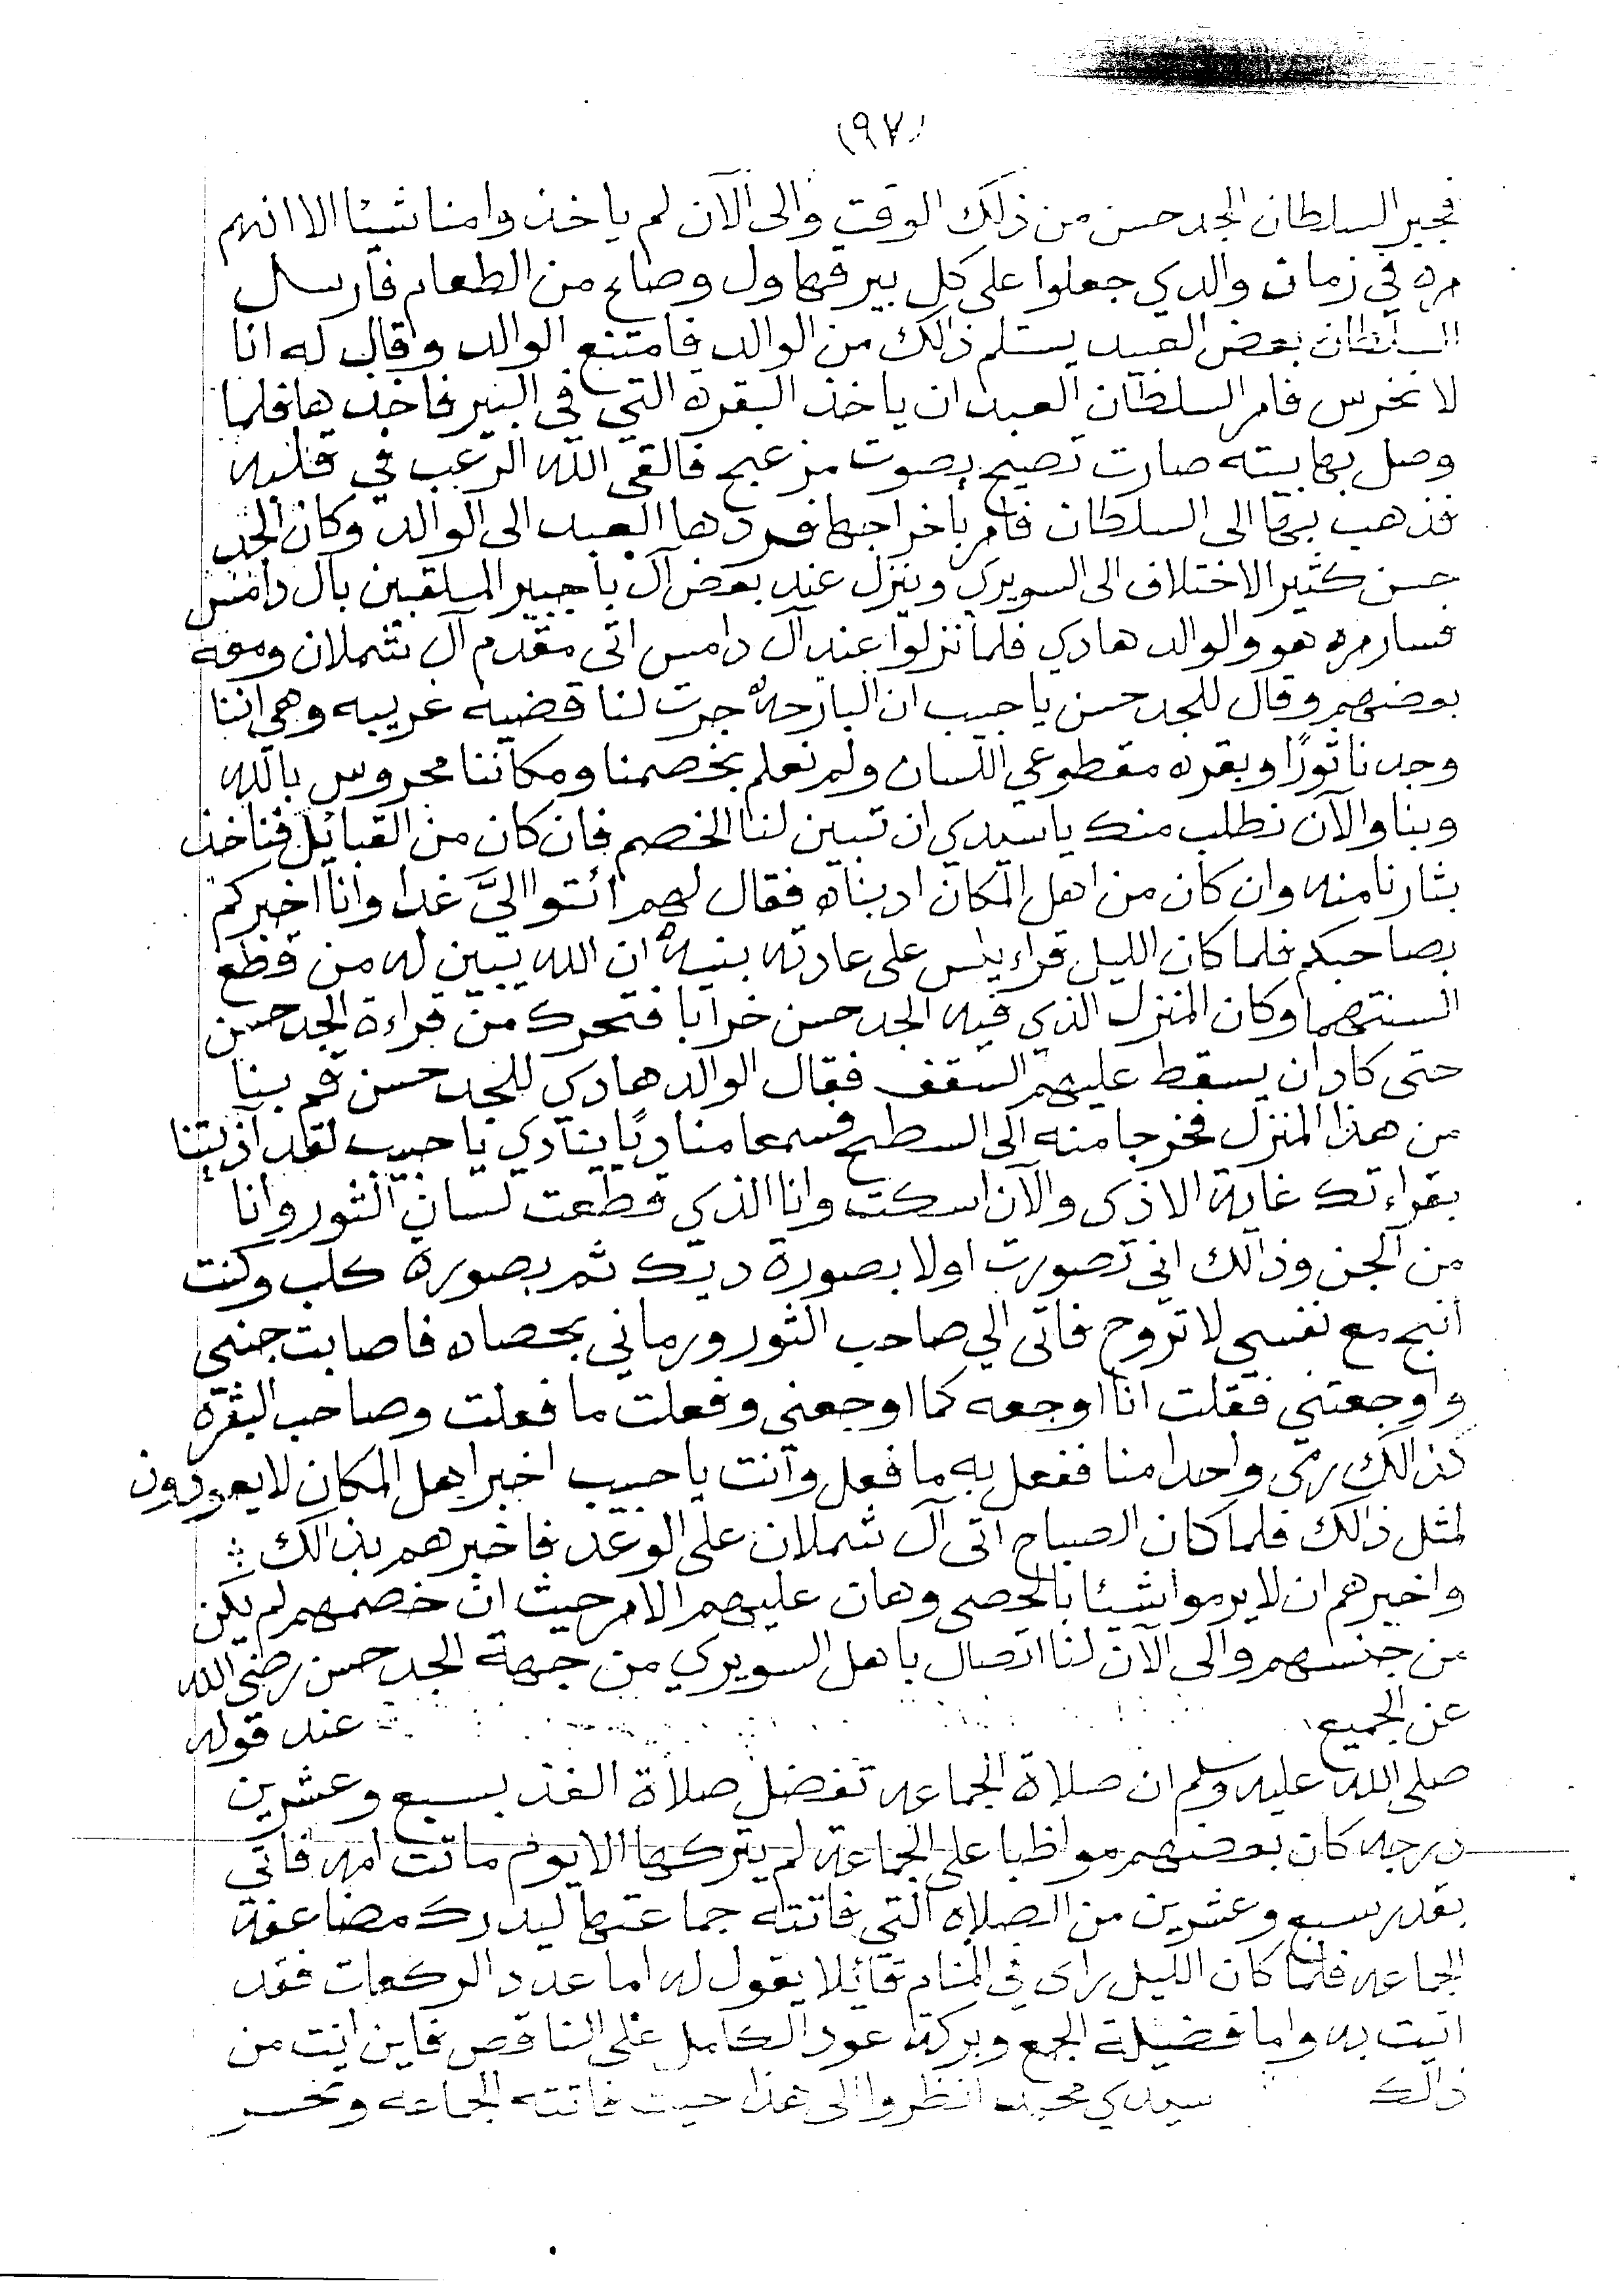 (٩٧)
فجبر السلطان الجد حسن من ذلك الوقت والى الآن لم ياخذوا منا شيئا الا انهم
مره في زمان والدي جعلوا على كل بير قهاول وصاع من الطعام فارسل
السلطان بعض العبيد يستلم ذالك من الوالد فامتنع الوالد وقال له انا
لا نخرس فامر السلطان العبد ان ياخذ البقره التي في البير فاخذها فلما
وصل بها بيته صارت تصيح بصوت مزعج فالقى الله الرعب في قلبه
فذهب بها الى السلطان فامر باخراجها فردها العبد الى الوالد وكان الجد
حسن كثير الاختلاف الى السويري وينزل عند بعض آل باجبير الملقبين بآل دامس
فسار مره هو والوالد هادي فلما نزلوا عند آل دامس اتى مقدم آل شملان ومعه
بعضهم وقال للجد حسن يا حبيب ان البارحة جرت لنا قضيه غريبه وهي اننا
وجدنا ثورًا وبقره مقطوعي اللسان ولم نعلم بخصمنا ومكاننا محروس بالله
وبنا والآن نطلب منك يا سيدي ان تبين لنا الخصم فان كان من القبائل فناخذ
بثارنا منه وان كان من اهل المكان ادبناه فقال لهم ائتوا اليَّ غدا وانا اخبركم
بصاحبكم فلما كان الليل قراء يس على عادته بنية ان الله يبين له من قطع
السنتهما وكان المنزل الذي فيه الجد حسن خرابا فتحرك من قراءة الجد حسن
حتى كاد ان يسقط عليهم السقف فقال الوالد هادي للجد حسن قم بنا
من هذا المنزل فخرجا منه الى السطح فسمعا مناديًا ينادي يا حبيب لقد آذيتنا
بقراءتك غاية الاذى والآن اسكت وانا الذي قطعت لسان الثور وانا
من الجن وذالك اني تصورت اولا بصورة ديك ثم بصوره كلب وكنت
انبح مع نفسي لا تروح فاتى الي صاحب الثور ورماني بحصاه فاصابت جنبي
واوجعتني فقلت انا اوجعه كما اوجعني وفعلت ما فعلت وصاحب البقرة
كذالك رمى واحدا منا ففعل به ما فعل وانت يا حبيب اخبر اهل المكان لا يعودون
لمثل ذالك فلما كان الصباح اتى آل شملان على الوعد فاخبرهم بذالك
واخبرهم ان لا يرموا شيئا بالحصى وهان عليهم الامر حيث ان خصمهم لم يكن
من جنسهم والى الآن لنا اتصال باهل السويري من جهة الجد حسن رضي الله
عن الجميع عند قوله
صلى الله عليه وسلم ان صلاة الجماعه تفضل صلاة الفذ بسبع وعشرين
درجه كان بعضهم مواظبا على الجماعة لم يتركها الا يوم ماتت امه فاتى
بقدر سبع وعشرين من الصلاه التي فاتته جماعتها ليدرك مضاعفة
الجماعه فلما كان الليل راى في المنام قائلا يقول له اما عدد الركعات فقد
اتيت به واما فضيلة الجمع وبركة عود الكامل على الناقص فاين انت من
ذالك سيدي محمد انظروا الى هذا حيث فاتته الجماعه وتحسر